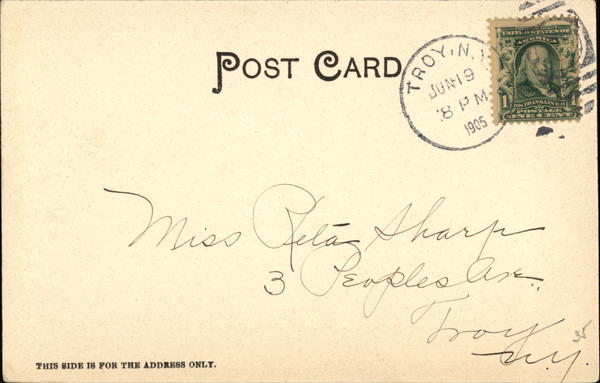 POST CARD
TROY, N.Y.
JUN 19
8 PM
1905
UNITED STATES OF AMERICA
1
POSTAGE
ONE CENT
Miss Reta Sharp
3 Peoples Ave.
Troy
N.Y.
35
THIS SIDE IS FOR THE ADDRESS ONLY.